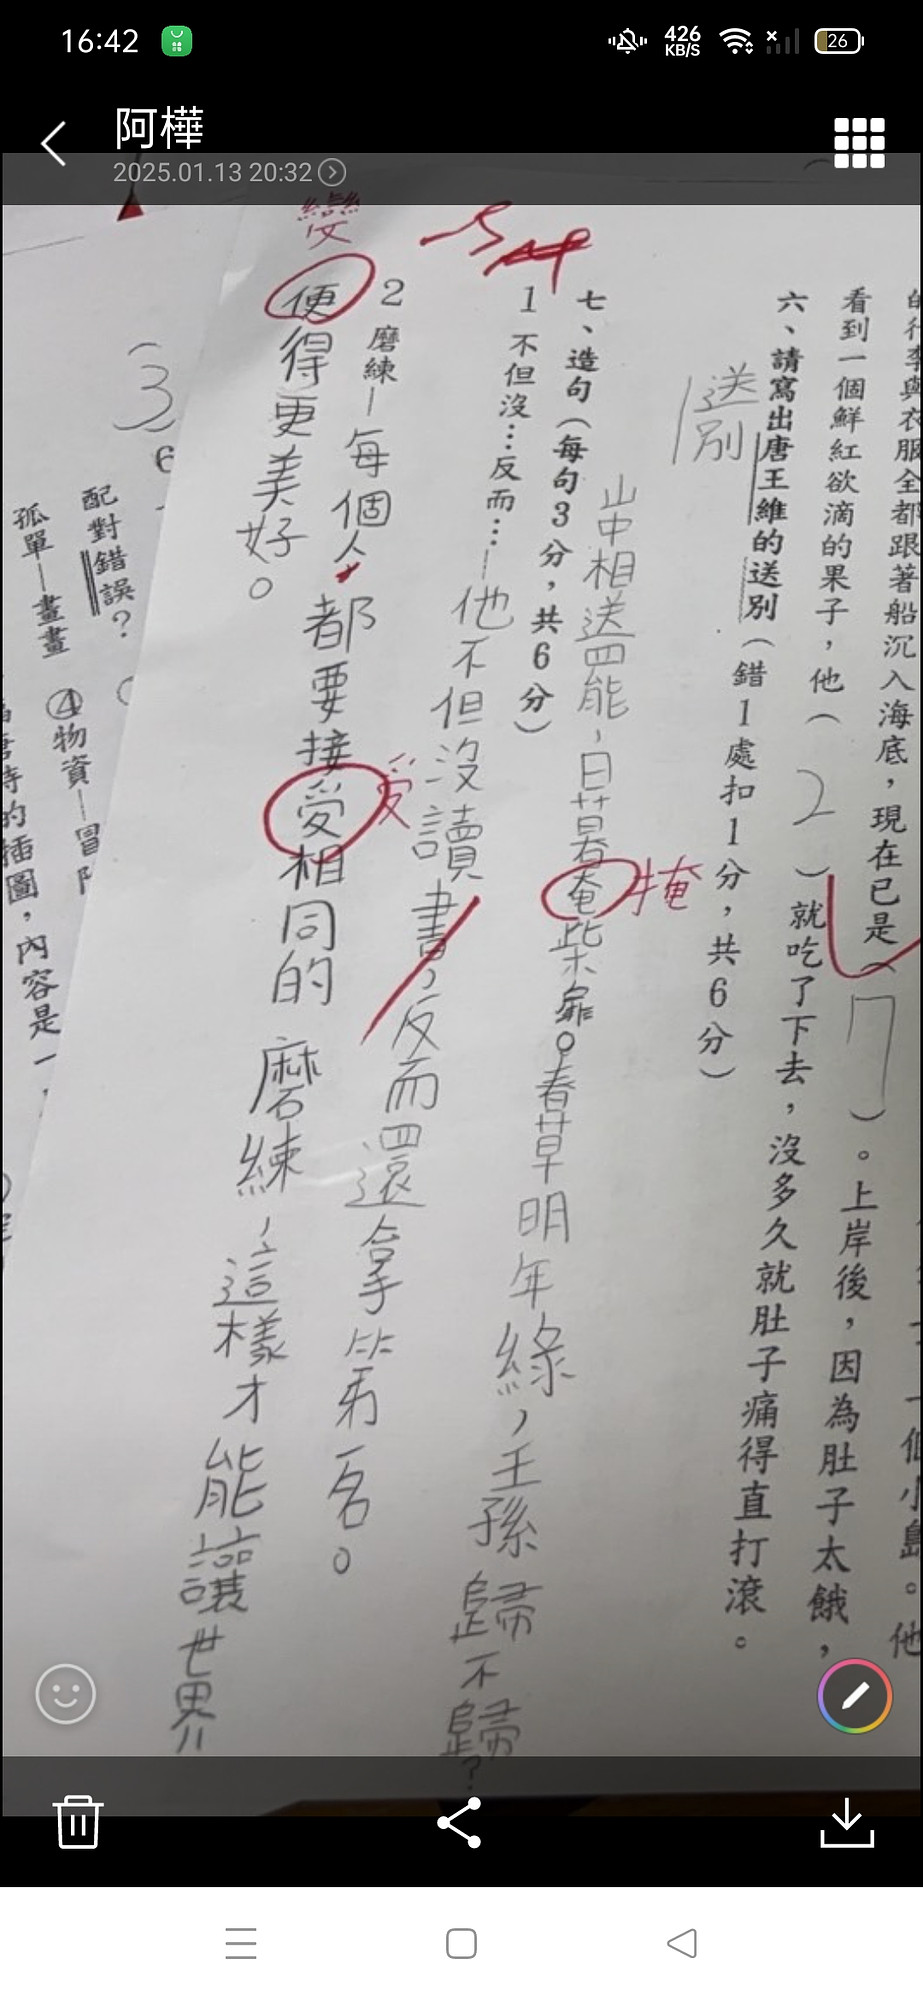 16:42
426
KB/S
26
阿樺
2025.01.13 20:32
看到一個鮮紅欲滴的果子，他（2）就吃了下去，沒多久就肚子痛得直打滾。
的行李與衣服全都跟著船沉入海底，現在已是（7）。上岸後，因為肚子太餓，
六、請寫出唐王維的送別（錯1處扣1分，共6分）
送別
山中相送四能，日暮奄柴扉。春草明年綠，王孫歸不歸？
掩
七、造句（每句3分，共6分）
1 不但沒…反而…—他不但沒讀書，反而還拿第一名。
2 磨練—每個人都要接受相同的磨練，這樣才能讓世界
便得更美好。
變
受
（3）
6
配對錯誤？
孤單—畫畫
④物資—冒
插圖，內容是一